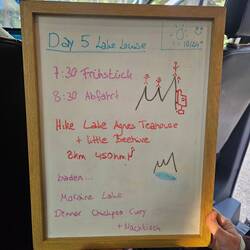 Day 5 Lake Louise
- 10/20°
7:30 Frühstück
8:30 Abfahrt
Hike Lake Agnes Teahouse
+ little Beehive
8km 450hm
baden...
Moraine Lake
Dinner Chickpea Curry
+ Nachtisch